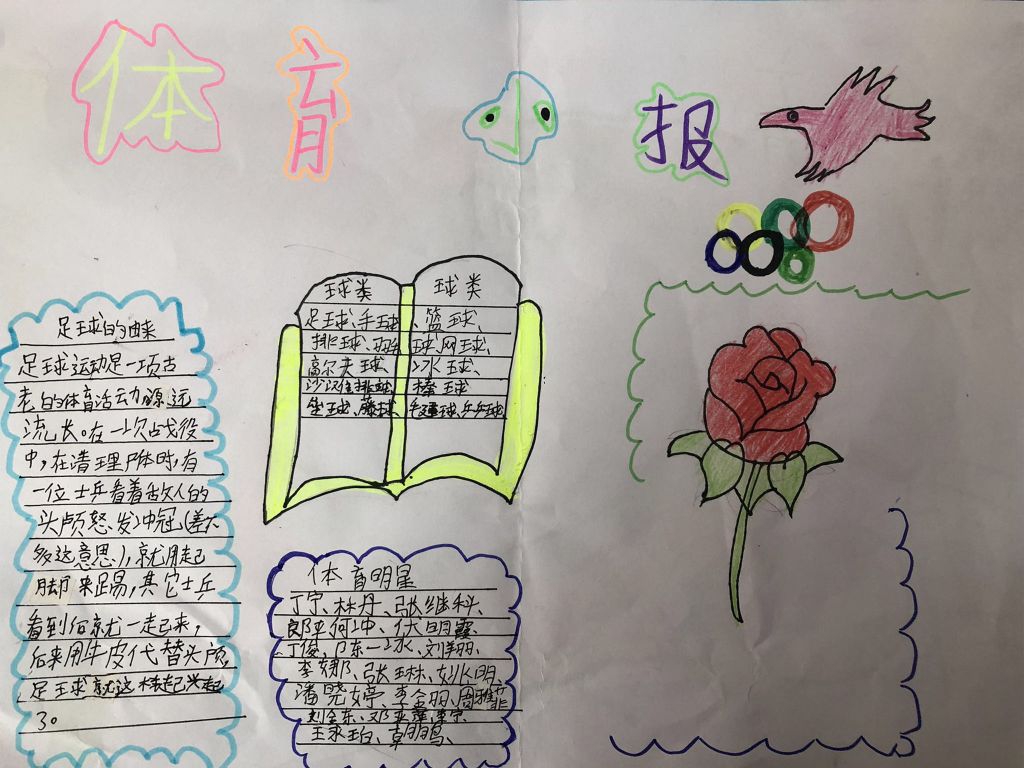 体育小报
足球的由来
足球运动是一项古
老的体育活动源远
流长。在一次战役
中,在清理尸体时,有
一位士兵看着敌人的
头颅怒发冲冠(差不
多这意思),就用起
脚来踢,其它士兵
看到后就一起来,
后来用牛皮代替头颅,
足球就这样起兴起
了。
球类
足球、手球
排球、羽毛
高尔夫球、
沙滩排球
垒球、藤球、
球类
、篮球、
球、网球、
冰球、
棒球
球、乒乓球
体育明星
丁宁、林丹、张继科、
郎平、何冲、伏明霞、
丁俊、刘翔、
李娜、张琳、
潘晓婷、李金羽、周雅菲
刘会东、邓亚萍、李宁、